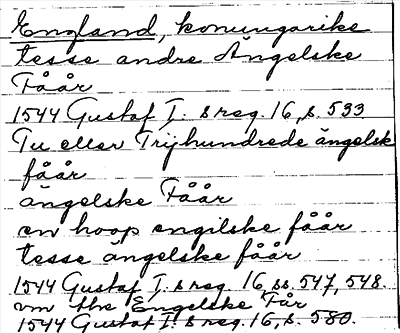 England, konungarike
tesse andre Ängelske
Fåår
1544 Gustaf I:s reg. 16, s. 533
Tu eller Trijhundrede ängelsk
fåår
ängelske Fåår
en hoop engilske fåår
tesse ängelske fåår
1544 Gustaf I:s reg. 16, ss. 547, 548.
vm the Engelske Får
1544 Gustaf I:s reg. 16, s. 580.